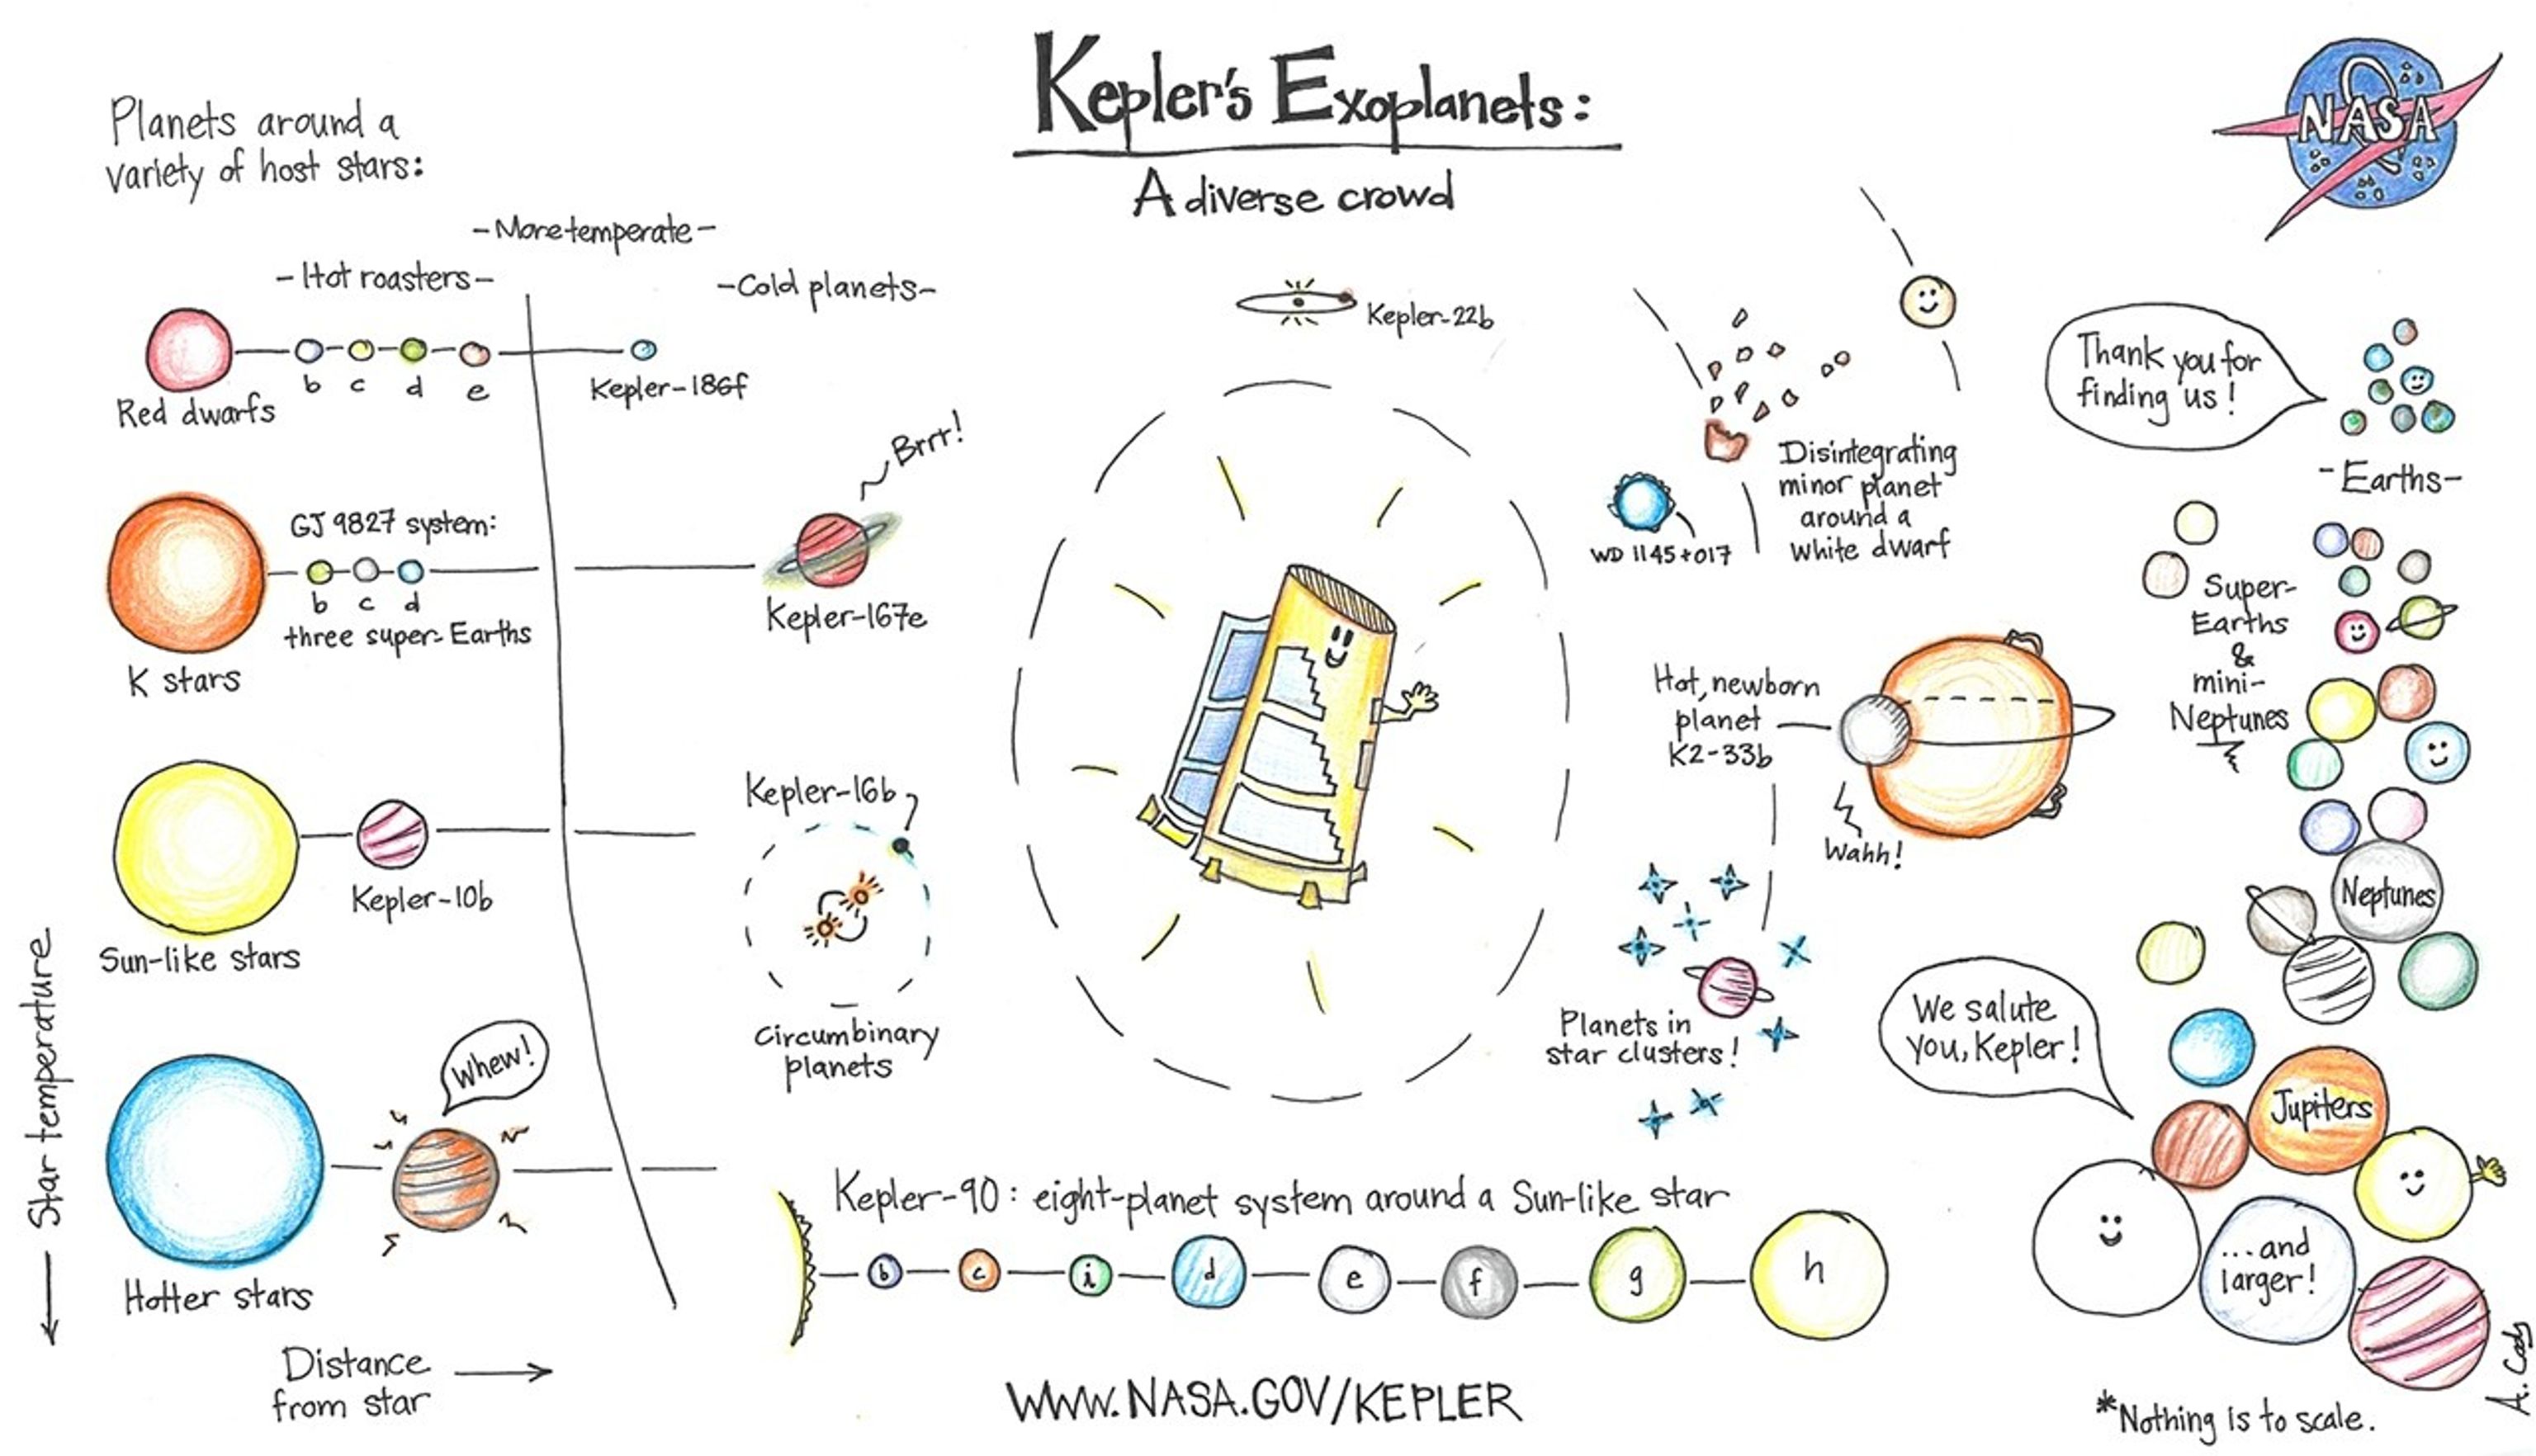 Kepler's Exoplanets:
A diverse crowd
NASA
Planets around a
variety of host stars:
-More temperate-
-Hot roasters-
-Cold planets-
b c d e
Red dwarfs
Kepler-186f
Brrr!
GJ 9827 system:
b c d
three super-Earths
K stars
Kepler-167e
Kepler-10b
Sun-like stars
Kepler-16b
Circumbinary
planets
Whew!
Hotter stars
Star temperature
Distance
from star
Kepler-22b
Disintegrating
minor planet
around a
white dwarf
WD 1145+017
Hot, newborn
planet
K2-33b
Wahh!
Planets in
star clusters!
Kepler-90: eight-planet system around a Sun-like star
b c i d e f g h
WWW.NASA.GOV/KEPLER
Thank you for
finding us!
-Earths-
Super-
Earths
&
mini-
Neptunes
Neptunes
We salute
you, Kepler!
Jupiters
...and
larger!
*Nothing is to scale.
A. Cady